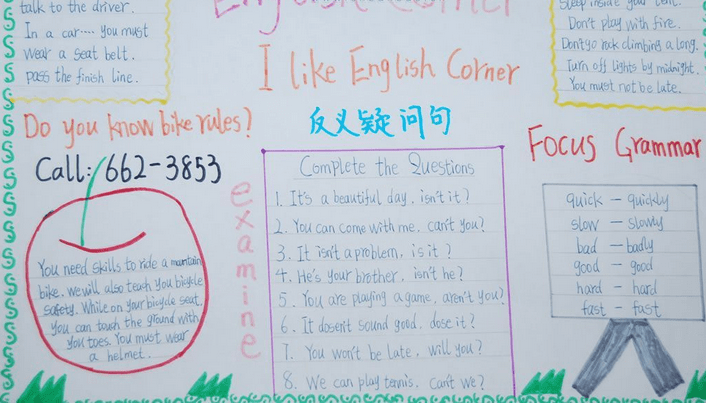 talk to the driver.
In a car.... you must
wear a seat belt.
pass the finish line.
English Corner
sleep inside your tent.
Don't play with fire.
Don't go rock climbing a long.
Turn off lights by midnight.
You must not be late.
I like English Corner
反义疑问句
Do you know bike rules?
Call: 662-3853
You need skills to ride a mountain
bike. we will also teach you bicycle
safety. While on your bicycle seat,
you can touch the ground with
you toes. You must wear
a helmet.
examine
Complete the Questions
1. It's a beautiful day, isn't it?
2. You can come with me, can't you?
3. It isn't a problem, is it?
4. He's your brother, isn't he?
5. You are playing a game, aren't you?
6. It dosen't sound good, dose it?
7. You won't be late, will you?
8. We can play tennis, can't we?
Focus Grammar
quick — quickly
slow — slowly
bad — badly
good — good
hard — hard
fast — fast